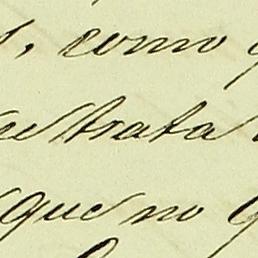 , como
trata
que no